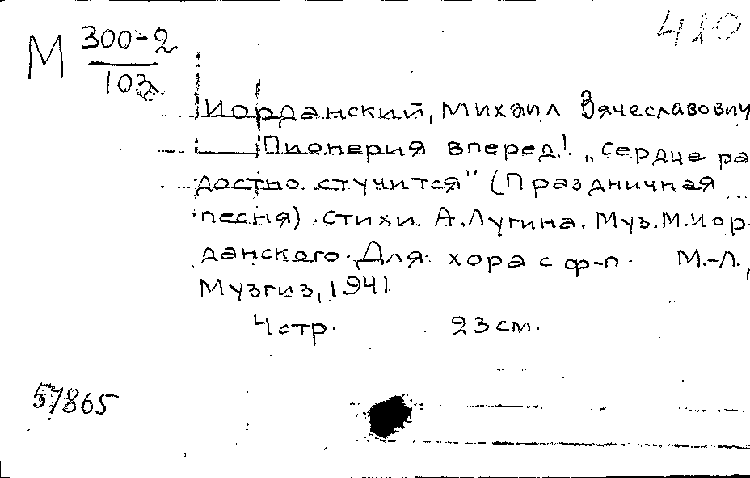 410
М 300-2
103
Иорданский, Михаил Вячеславович
Пионерия вперед! „Сердце ра
достно стучится" (Праздничная
песня). Стихи А.Лугина. Муз. М.Иор-
данского. Для хора с ф-п. М.-Л.,
Музгиз, 1941
4 стр. 23 см.
57865